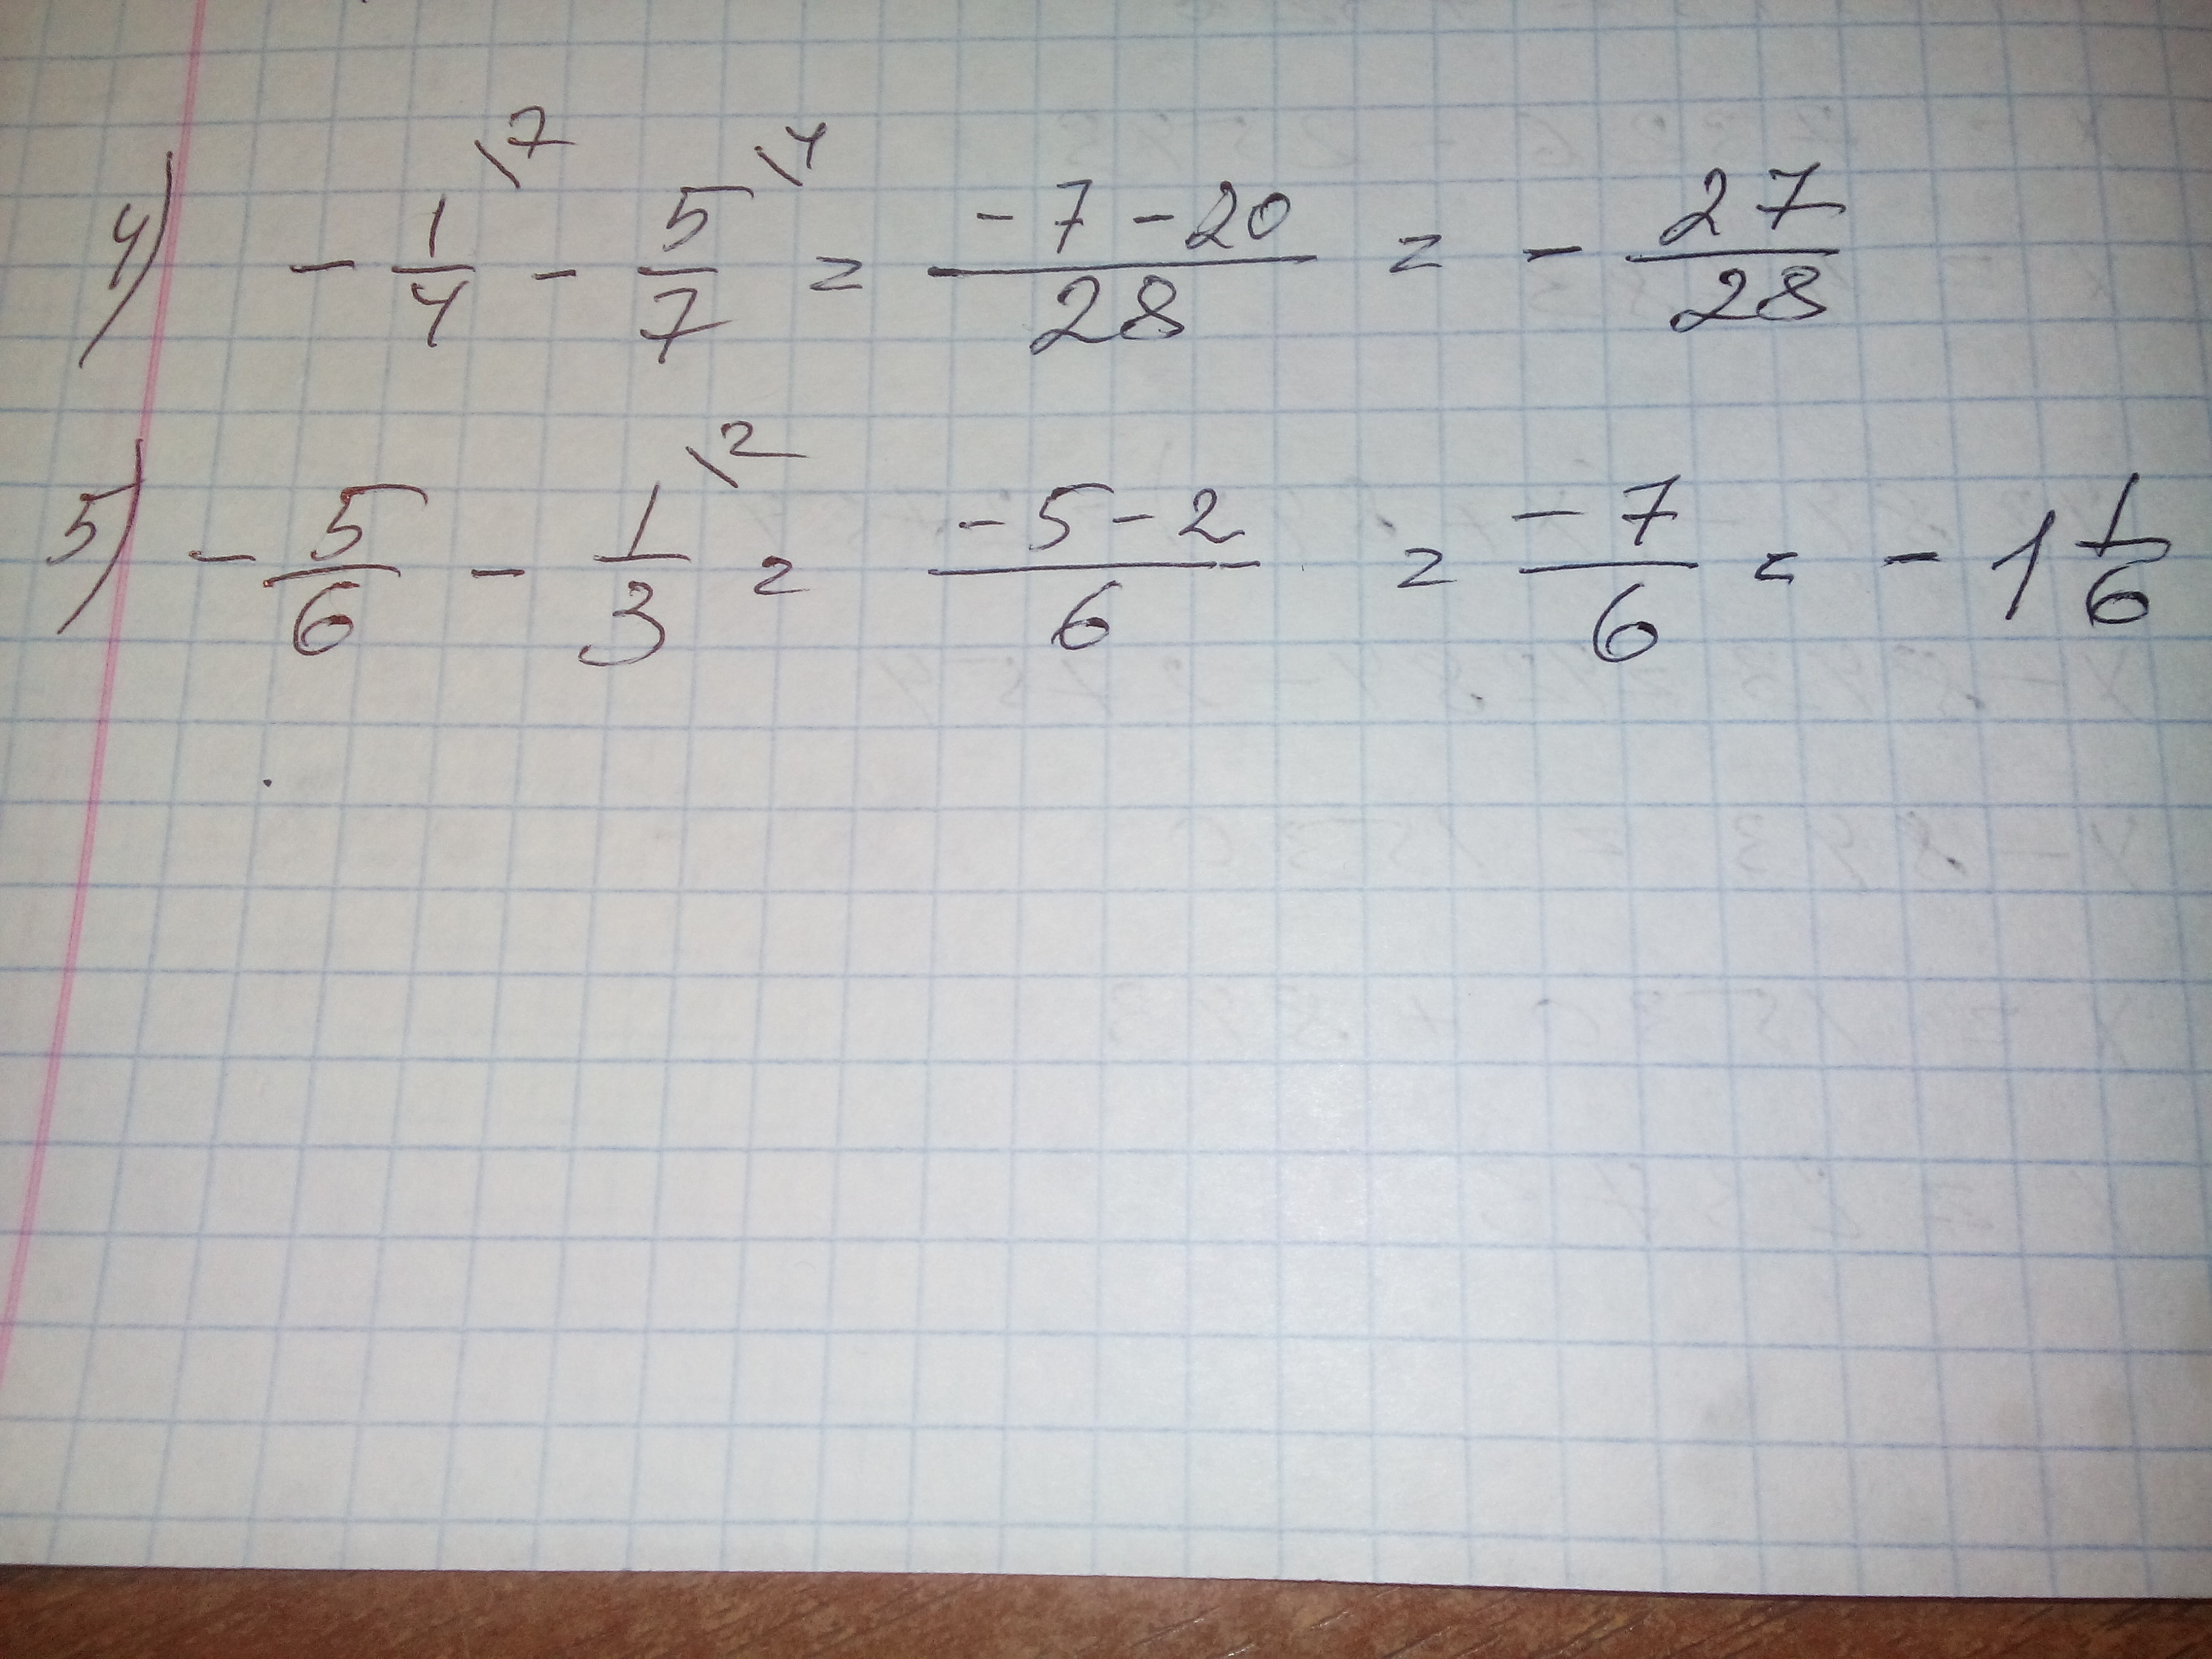 4) - 1/4 \7 - 5/7 \4 = -7-20/28 = - 27/28
5) - 5/6 - 1/3 \2 = -5-2/6 = -7/6 = - 1 1/6